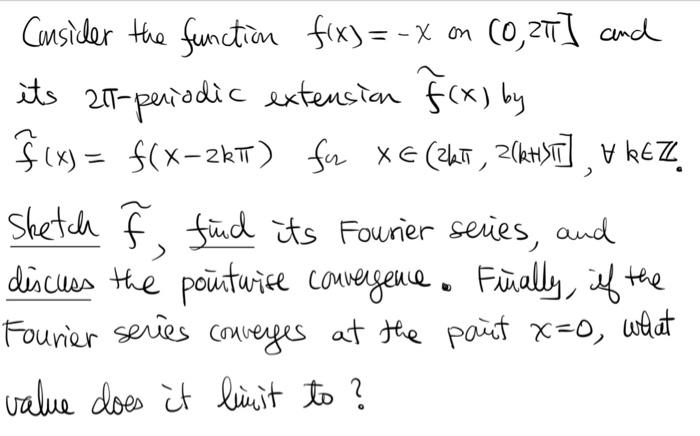 Consider the function f(x) = -x on (0,2π] and
its 2π-periodic extension f̃(x) by
f̃(x) = f(x-2kπ) for x ∈ (2kπ, 2(k+1)π], ∀ k∈ℤ.
Sketch f̃, find its Fourier series, and
discuss the pointwise convergence. Finally, if the
Fourier series converges at the point x=0, what
value does it limit to?